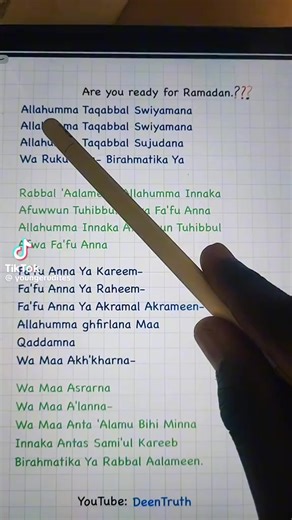 Are you ready for Ramadan.???
Allahumma Taqabbal Swiyamana
Taqabbal Swiyamana
Taqabbal Sujudana
Wa Birahmatika Ya
Rabbal 'Aalam Allahumma Innaka
Afuwwun Tuhibbu Fa'fu Anna
Allahumma Innaka Tuhibbul
Fa'fu Anna
Fa'fu Anna Ya Kareem-
Fa'fu Anna Ya Raheem-
Fa'fu Anna Ya Akramal Akrameen-
Allahumma ghfirlana Maa
Qaddamna
Wa Maa Akh'kharna-
Wa Maa Asrarna
Wa Maa A'lanna-
Wa Maa Anta 'Alamu Bihi Minna
Innaka Antas Sami'ul Kareeb
Birahmatika Ya Rabbal Aalameen.
YouTube: DeenTruth
TikTok